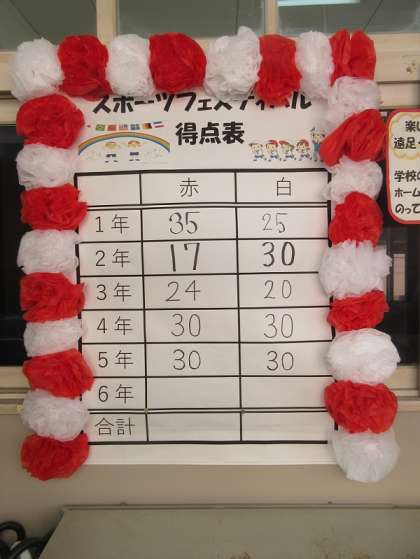 スポーツフェスティバル
得点表
赤 白
1年 35 25
2年 17 30
3年 24 20
4年 30 30
5年 30 30
6年
合計
楽し
遠足・
学校の
ホーム
のって